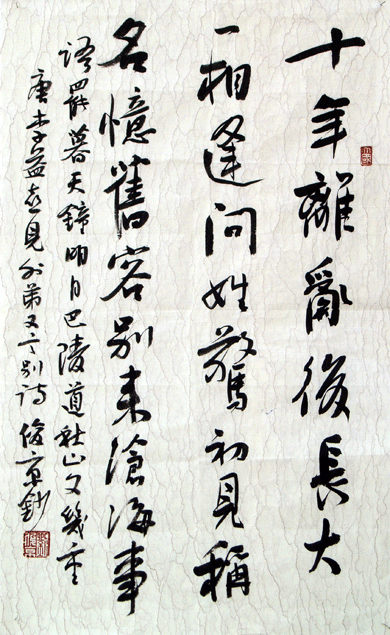 十年離亂後長大
一相逢問姓驚初見稱
名憶舊容別來滄海事
語罷暮天鐘明日巴陵道秋山又幾重
唐李益喜見外弟又言別詩 俊京鈔